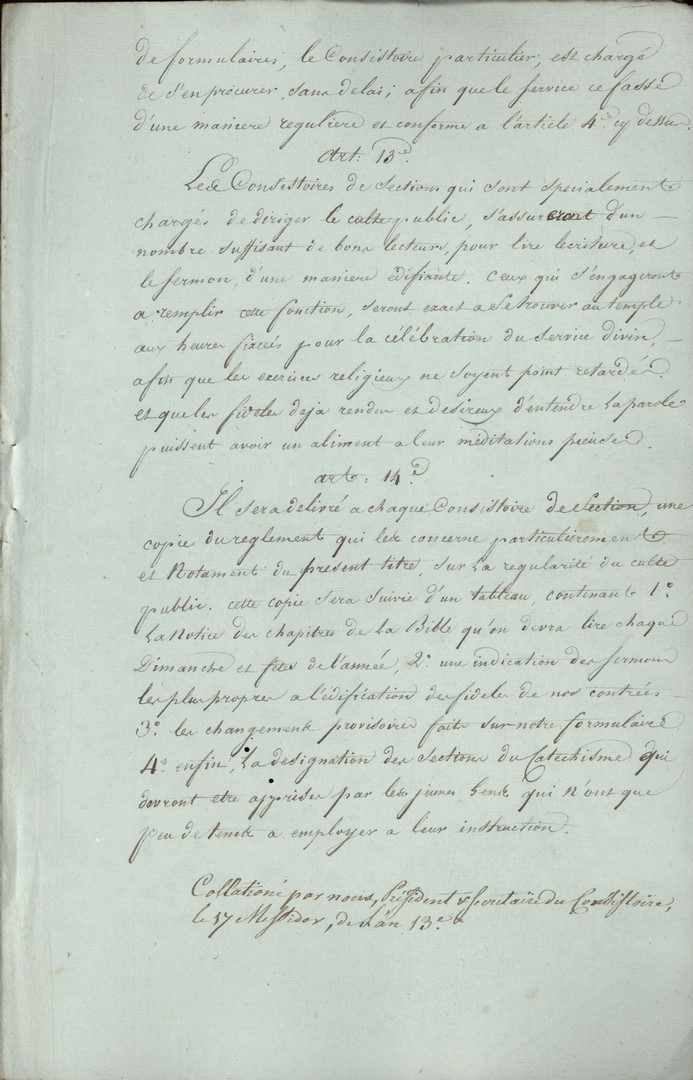 de formulaires, le Consistoire particulier, est chargé
de s'en procurer sans delai; afin que le service ce fasse
d'une maniere reguliere et conforme a l'article 4e. cy dessus.
art: 13e.
Les Consistoires de Sections qui sont specialement
chargés de diriger le culte public, s'assureront d'un —
nombre suffisant de bons lecteurs, pour lire lecriture, et
le sermon, d'une maniere édifiante. Ceux qui s'engageront
a remplir cette fonction, seront exact a se trouver au temple
aux heures fixées pour la célébration du service divin, —
afin que les exercices religieux ne soyent point retardés
et que les fideles deja rendus et desireux d'entendre la parole
puissent avoir un aliment a leur méditations pieuses.
art: 14e.
Il sera delivré a chaque Consistoire de Section, une
copie du reglement qui les concerne particulierement
et Notament du present titre, sur la regularité du culte
public. cette copie sera suivie d'un tableau, contenant 1o.
La Notice des chapitres de la Bible qu'on devra lire chaque
Dimanche et fêtes de l'année, 2o. une indication des sermons
les plus propres a l'édification des fideles de nos contrées —
3o. les changements provisoires faits sur notre formulaire
4o. enfin, La designation des Sections du Catechisme qui
devront etre apprises par les jeunes Gens qui n'ont que
peu de tems a employer a leur instruction.
Collationé par nous, Président & Secretaire du Consistoire,
le 17 Messidor, de l'an 13e.